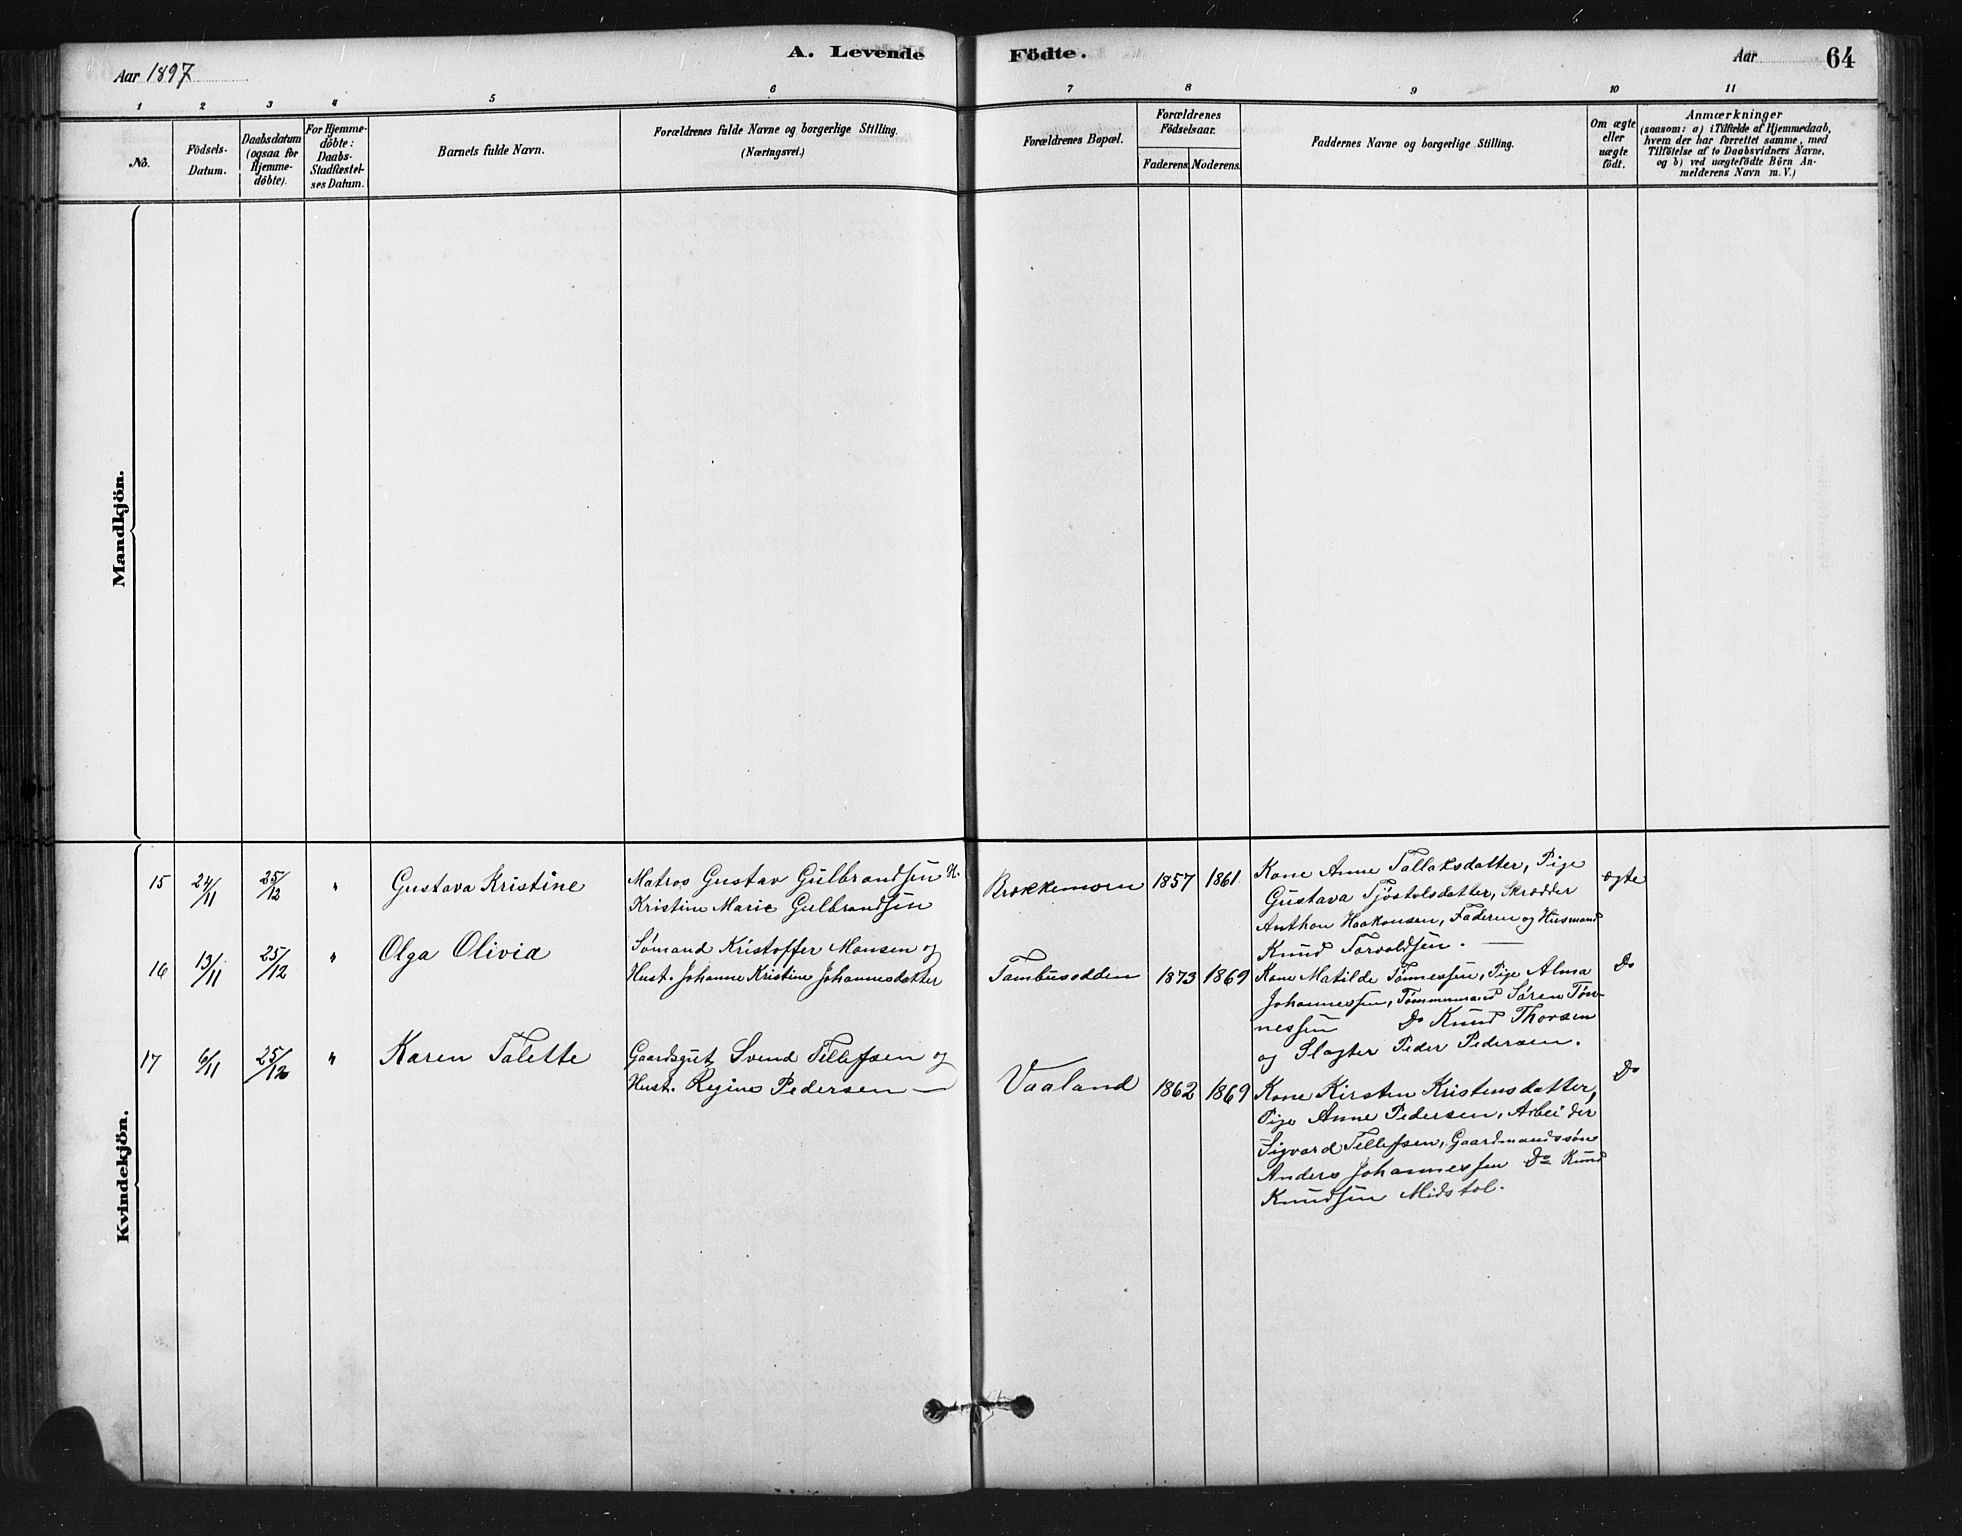 Aar 1897
A. Levende Födte.
Aar 64
1 2 3 4 5 6 7 8 9 10 11
No.
Födsels-
Datum.
Daabsdatum
(ogsaa for
Hjemme-
döbte).
For Hjemme-
döbte:
Daabs-
Stadfæstel-
ses Datum.
Barnets fulde Navn.
Forældrenes fulde Navne og borgerlige Stilling.
(Næringsvei.)
Forældrenes Bopæl.
Forældrenes
Födselsaar.
Faderens. Moderens.
Faddernes Navne og borgerlige Stilling.
Om ægte
eller
uægte
födt.
Anmærkninger
(saasom: a) i Tilfælde af Hjemmedaab,
hvem der har forrettet samme, med
Tilföielse af to Daabsvidners Navne,
og b) ved uægtefödte Börn An-
melderens Navn m. V.)
Mandkjön.
Kvindekjön.
15 24/11 25/12 " Gustava Kristine
Matros Gustav Gulbrandsen H.
Kristine Marie Gulbrandsen
1857 1861
Kone Anne Tallaksdatter, Pige
Gustava Tjöstolsdatter, Skrædder
Anthon Haakonsen, Faderen og Husmand
Knud Torvaldsen. —
ægte
16 13/11 25/12 " Olga Olivia
Sömand Kristoffer Hansen og
Hust. Johanne Kristine Johannesdatter
Tambusodden 1873 1869
Kone Matilde Tønnessen, Pige Alma
Johannessen, Tømmermand Søren Tøn-
nessen Do Knud Thorsen
og Slagter Peder Pedersen.
Do
17 6/11 25/12 " Karen Talette
Gaardsgut Svend Tellefsen og
Hust. Regine Pedersen —
Vaaland 1862 1869
Kone Kirsten Kristensdatter,
Pige Anne Pedersen, Arbeider
Sigvard Tellefsen, Gaardmandssøn
Anders Johannessen Do Knud
Knudsen Midstol.
Do